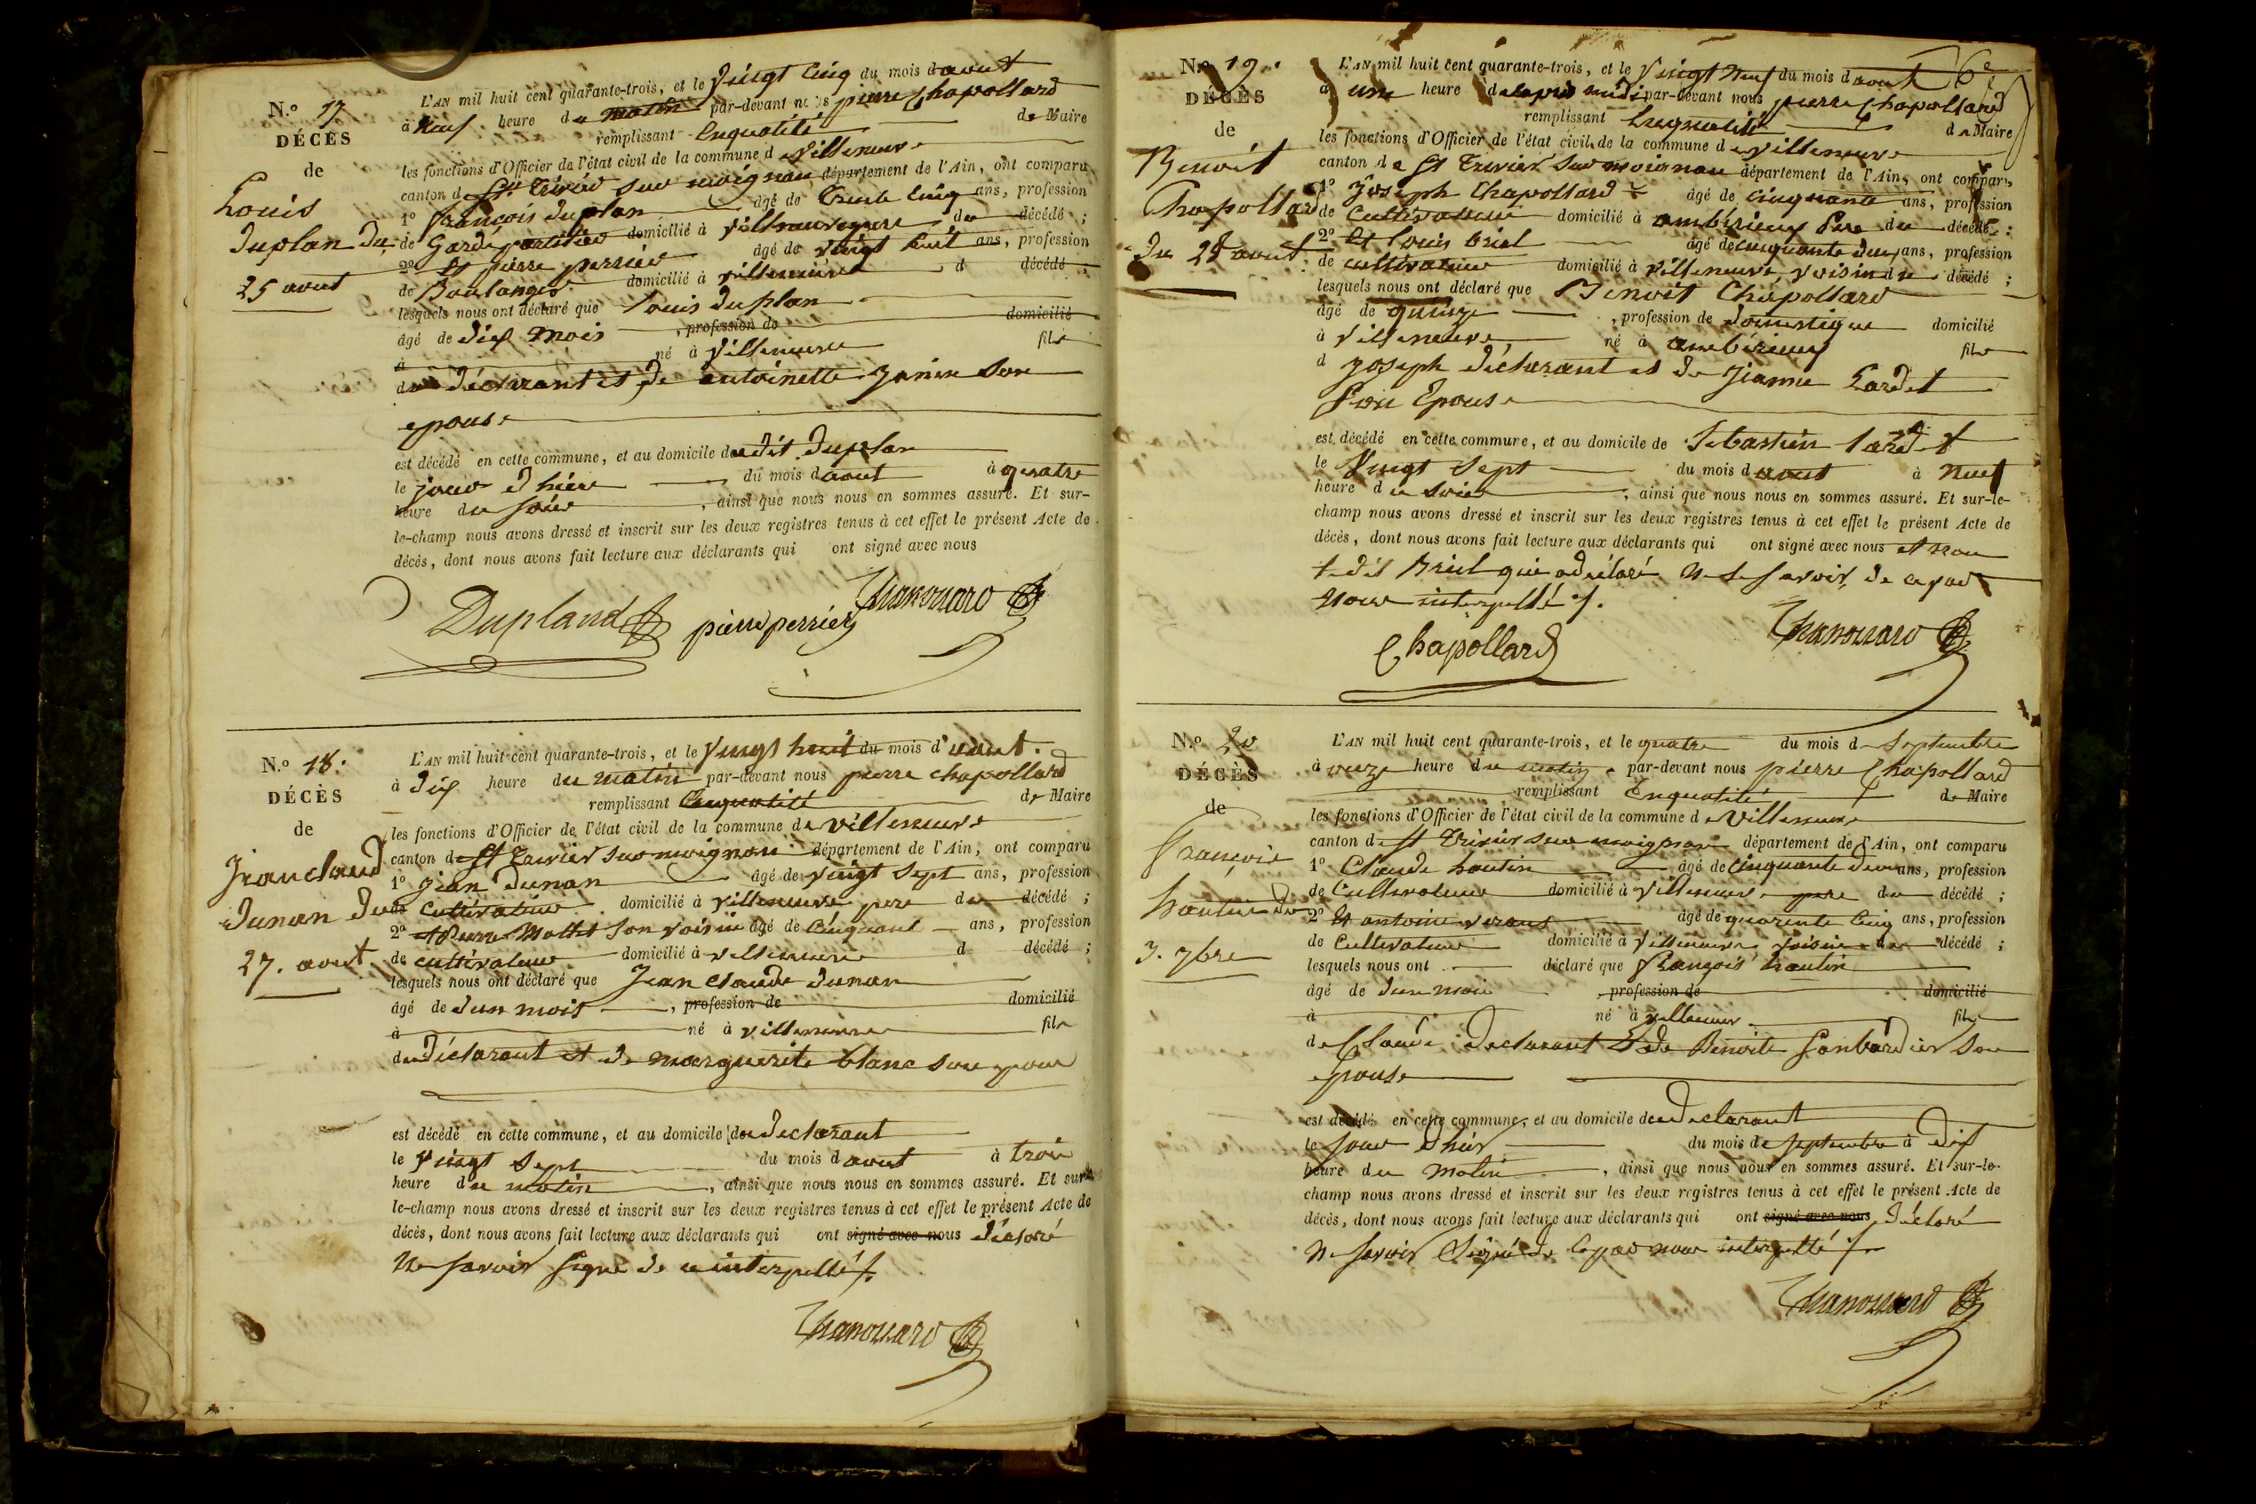 N.o 17
DÉCÈS
de
Louis
duplan du
25 aout
L'AN mil huit cent quarante-trois, et le vingt cinq du mois d aout
à neuf heure du matin par-devant nous pierre Chapollard
remplissant Enqualité de Maire
les fonctions d'Officier de l'état civil de la commune de villeneuve
canton de St Trivier sur moignan département de l'Ain, ont comparu
1o françois duplan âgé de trente cinq ans, profession
de Garde particulier domicilié à villeneuve pere du décédé ;
2o et pierre perrier âgé de vingt huit ans, profession
de Boulanger domicilié à villeneuve d décédé ;
lesquels nous ont déclaré que louis duplan
âgé de dix mois , profession de domicilié
à né à villeneuve fils
du déclarant et de antoinette janin son
epouse
est décédé en cette commune, et au domicile dudit duplan
le jour d'hier du mois d aout à quatre
heure du soir , ainsi que nous nous en sommes assuré. Et sur-
le-champ nous avons dressé et inscrit sur les deux registres tenus à cet effet le présent Acte de
décès, dont nous avons fait lecture aux déclarants qui ont signé avec nous
Dupland pierre perrier
N.o 18.
DÉCÈS
de
Jean claud
dunan du
27. aout
L'AN mil huit cent quarante-trois, et le vingt huit du mois d'aout.
à dix heure du matin par-devant nous pierre chapollard
remplissant Enqualité de Maire
les fonctions d'Officier de l'état civil de la commune de villeneuve
canton de St Trivier sur moignan département de l'Ain, ont comparu
1o jean dunan âgé de vingt sept ans, profession
de cultivateur domicilié à villeneuve pere du décédé ;
2o et Pierre Mollet son voisin âgé de cinquante ans, profession
de cultivateur domicilié à villeneuve d décédé ;
lesquels nous ont déclaré que Jean Claude dunan
âgé de d'un mois , profession de domicilié
à né à villeneuve fils
du déclarant et de marguerite blanc son epouse
est décédé en cette commune, et au domicile du declarant
le vingt sept du mois d aout à trois
heure du matin , ainsi que nous nous en sommes assuré. Et sur
le-champ nous avons dressé et inscrit sur les deux registres tenus à cet effet le présent Acte de
décès, dont nous avons fait lecture aux déclarants qui ont signé avec nous déclaré
ne savoir signé de ce interpellé
N.o 19.
DÉCÈS
de
Benoit
Chapollard
du 28 aout
6e
L'AN mil huit cent quarante-trois, et le vingt neuf du mois d aout
à une heure de lapres midi par-devant nous pierre Chapollard
remplissant Enqualité de Maire
les fonctions d'Officier de l'état civil de la commune de villeneuve
canton de St Trivier sur moignan département de l'Ain, ont comparu
1o Joseph Chapollard âgé de cinquante ans, profession
de cultivateur domicilié à ambérieux pere du décédé ;
2o et louis briel âgé de cinquante deux ans, profession
de cultivateur domicilié à villeneuve voisin du décédé ;
lesquels nous ont déclaré que Benoit Chapollard
âgé de quinze , profession de domestique domicilié
à villeneuve, né à ambérieux fils
d joseph déclarant et de jeanne Lardet
son Epouse
est décédé en cette commune, et au domicile de Sebastien lardet
le vingt sept du mois d aout à neuf
heure du soir , ainsi que nous nous en sommes assuré. Et sur-le-
champ nous avons dressé et inscrit sur les deux registres tenus à cet effet le présent Acte de
décès, dont nous avons fait lecture aux déclarants qui ont signé avec nous et non
ledit Briel qui a déclaré ne le savoir de ce par
nous interpellé
Chapollard
N.o 20
DÉCÈS
de
françois
hautin du
3. 7bre
L'AN mil huit cent quarante-trois, et le quatre du mois de Septembre
à onze heure du matin par-devant nous pierre Chapollard
remplissant Enqualité de Maire
les fonctions d'Officier de l'état civil de la commune de villeneuve
canton de St Trivier sur moignan département de l'Ain, ont comparu
1o Claude hautin âgé de cinquante deux ans, profession
de Cultivateur domicilié à villeneuve pere du décédé ;
2o et antoine âgé de quarente cinq ans, profession
de Cultivateur domicilié à villeneuve voisin du décédé ;
lesquels nous ont déclaré que françois hautin
âgé de d'un mois profession de domicilié
à né à villeneuve fils
de Claude declarant et de Benoite son
epouse
est décédé en cette commune, et au domicile du declarant
le jour d'hier du mois de septembre à dix
heure du matin , ainsi que nous nous en sommes assuré. Et sur-le-
champ nous avons dressé et inscrit sur les deux registres tenus à cet effet le présent Acte de
décès, dont nous avons fait lecture aux déclarants qui ont signé avec nous déclaré
ne savoir Signé de ce par nous interpellé